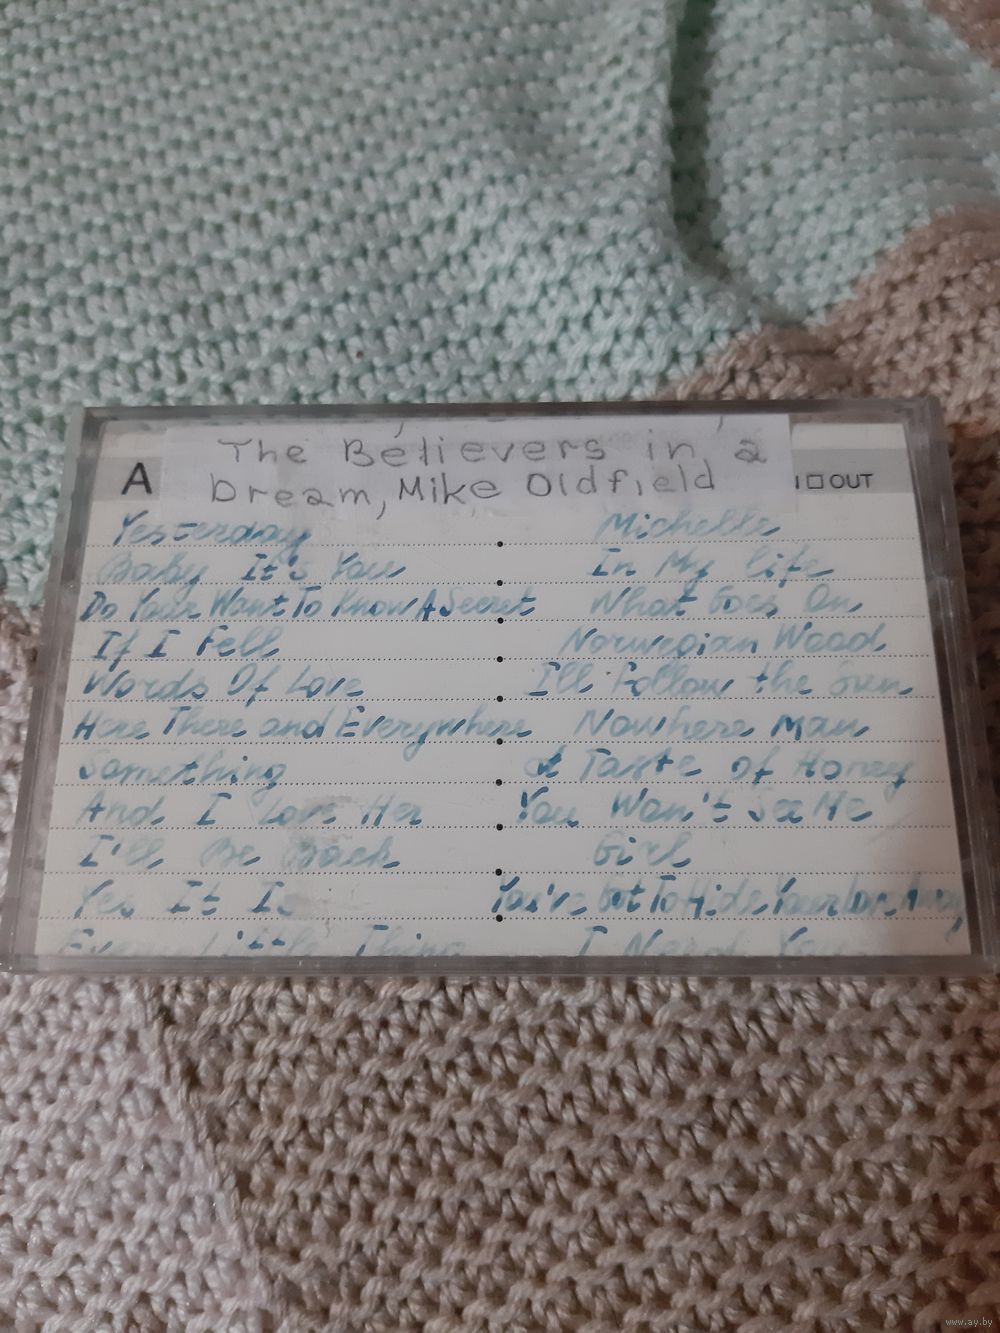 A
The Believers in a
Dream, Mike Oldfield
OUT
Yesterday
Michelle
Baby It's You
In My Life
Do Your Want To Know A Secret
What Goes On
If I Fell
Norwegian Wood
Words Of Love
I'll Follow the Sun
Here There and Everywhere
Nowhere Man
Something
A Taste of Honey
And I Love Her
You Won't See Me
I'll Be Back
Girl
Yes It Is
You've Got To Hide Your Love Away
Every Little Thing
I Need You
www.ay.by